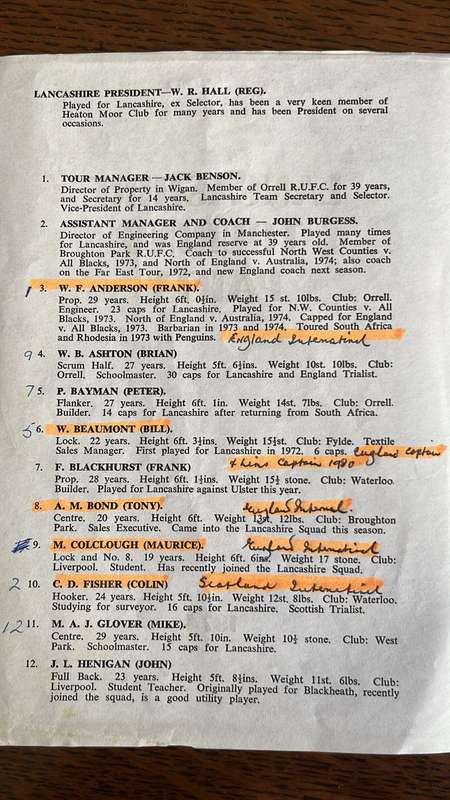 LANCASHIRE PRESIDENT—W. R. HALL (REG).
Played for Lancashire, ex Selector, has been a very keen member of
Heaton Moor Club for many years and has been President on several
occasions.
1. TOUR MANAGER — JACK BENSON.
Director of Property in Wigan. Member of Orrell R.U.F.C. for 39 years,
and Secretary for 14 years. Lancashire Team Secretary and Selector.
Vice-President of Lancashire.
2. ASSISTANT MANAGER AND COACH — JOHN BURGESS.
Director of Engineering Company in Manchester. Played many times
for Lancashire, and was England reserve at 39 years old. Member of
Broughton Park R.U.F.C. Coach to successful North West Counties v.
All Blacks, 1973, and North of England v. Australia, 1974; also coach
on the Far East Tour, 1972, and new England coach next season.
1 3. W. F. ANDERSON (FRANK).
Prop. 29 years. Height 6ft. 0½in. Weight 15 st. 10lbs. Club: Orrell.
Engineer. 23 caps for Lancashire. Played for N.W. Counties v. All
Blacks, 1973. North of England v. Australia, 1974. Capped for England
v. All Blacks, 1973. Barbarian in 1973 and 1974. Toured South Africa
and Rhodesia in 1973 with Penguins. England International
9 4. W. B. ASHTON (BRIAN)
Scrum Half. 27 years. Height 5ft. 6½ins. Weight 10st. 10lbs. Club:
Orrell. Schoolmaster. 30 caps for Lancashire and England Trialist.
7 5. P. BAYMAN (PETER).
Flanker. 27 years. Height 6ft. 1in. Weight 14st. 7lbs. Club: Orrell.
Builder. 14 caps for Lancashire after returning from South Africa.
5 6. W. BEAUMONT (BILL).
Lock. 22 years. Height 6ft. 3½ins. Weight 15½st. Club: Fylde. Textile
Sales Manager. First played for Lancashire in 1972. 6 caps. England Captain
& Lions Captain 1980
7. F. BLACKHURST (FRANK)
Prop. 28 years. Height 6ft. 1½ins. Weight 15½ stone. Club: Waterloo.
Builder. Played for Lancashire against Ulster this year.
8. A. M. BOND (TONY). England Internat.
Centre. 20 years. Height 6ft. Weight 13st. 12lbs. Club: Broughton
Park. Sales Executive. Came into the Lancashire Squad this season.
9. M. COLCLOUGH (MAURICE). England International
Lock and No. 8. 19 years. Height 6ft. 6ins. Weight 17 stone. Club:
Liverpool. Student. Has recently joined the Lancashire Squad.
2 10. C. D. FISHER (COLIN) Scotland International
Hooker. 24 years. Height 5ft. 10½in. Weight 12st. 8lbs. Club: Waterloo.
Studying for surveyor. 16 caps for Lancashire. Scottish Trialist.
12 11. M. A. J. GLOVER (MIKE).
Centre. 29 years. Height 5ft. 10in. Weight 10½ stone. Club: West
Park. Schoolmaster. 15 caps for Lancashire.
12. J. L. HENIGAN (JOHN)
Full Back. 23 years. Height 5ft. 8½ins. Weight 11st. 6lbs. Club:
Liverpool. Student Teacher. Originally played for Blackheath, recently
joined the squad, is a good utility player.